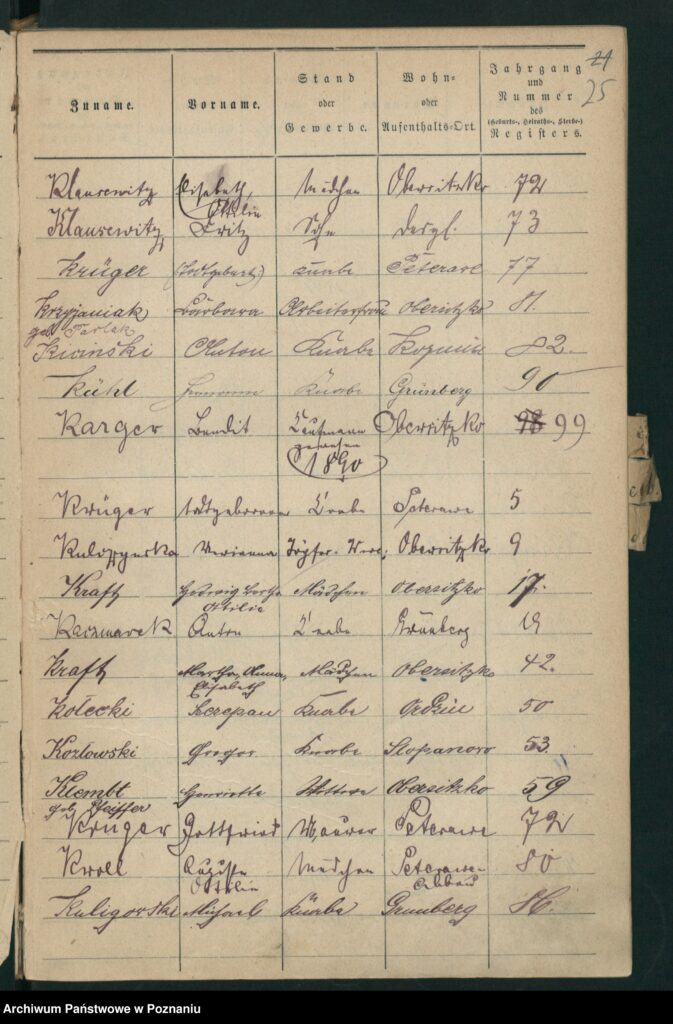 24
25
Zuname. Vorname. Stand oder Gewerbe. Wohn- oder Aufenthalts-Ort. Jahrgang und Nummer des (Geburts-, Heiraths-, Sterbe-) Registers.
Klausewitz Elisabeth, Ottilie Mädchen Obersitzko 72
Klausewitz Fritz Sohn desgl. 73
Krüger (Todtgeburt) Knabe Peterawe 77
Krzyzaniak geb. Tarlak Barbara Arbeiterfrau Obersitzko 81.
Kwinski Anton Knabe Kozmin 82.
Kühl Knabe Grünberg 90
Karger Bendit Kaufmann gewesen Obersitzko 98 99
1890
Krüger todtgeboren Knabe Peterawe 5
Marianna Töpfer- Obersitzko 9
Kraft Hedwig Bertha Ottilie Mädchen Obersitzko 17.
Kaczmarek Anton Knabe Grünberg 19
Kraft Martha, Anna, Elisabeth Mädchen Obersitzko 42.
Kołecki Szczepan Knabe Ordzin 50
Kozlowski Gregor Knabe Slopanowo 53.
Klembt geb. Pfeiffer Henriette Wittwe Obersitzko 59
Krüger Gottfried Maurer Peterawe 72
Kroll Auguste Ottilie Mädchen Peterawe- Abbau 80
Kuligowski Michael Knabe Grünberg 86.
Archiwum Państwowe w Poznaniu